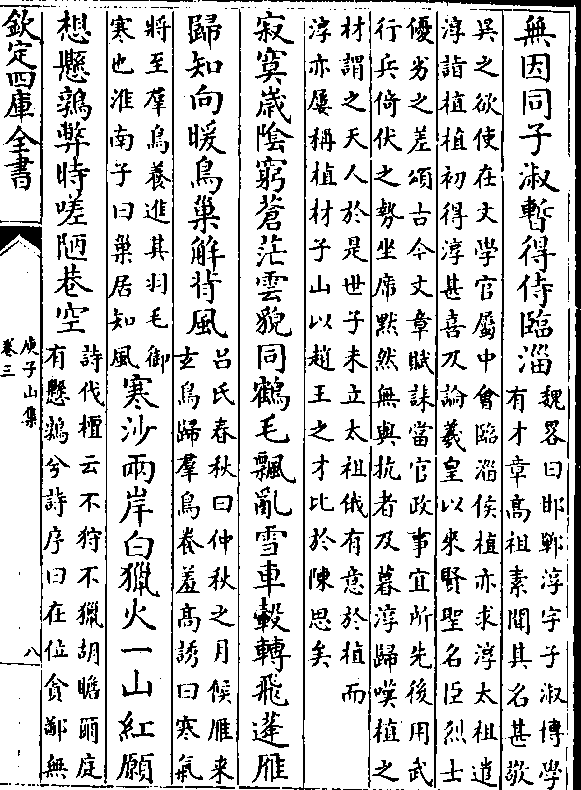 無因同子淑暫得侍臨淄魏畧曰邯鄲淳字子淑博學
有才章高祖素聞其名甚敬
異之欲使在文學官屬中會臨淄侯植亦求淳太祖遣
淳詣植植初得淳甚喜又論羲皇以來賢聖名臣烈士
優劣之差頌古今文章賦誄當官政事宜所先後用武
行兵倚伏之勢坐席默然無與抗者及暮淳歸嘆植之
材謂之天人於是世子未立太祖俄有意於植而
淳亦屢稱植材子山以趙王之才比於陳思矣
寂寞歳陰窮蒼茫雲貌同鶴毛飄亂雪車轂轉飛蓬雁
歸知向暖鳥巢解背風吕氏春秋曰仲秋之月候雁来
玄鳥歸羣鳥養羞高誘曰寒氣
將至羣鳥養進其羽毛御
寒也淮南子曰巢居知風寒沙兩岸白獵火一山紅願
想懸鶉弊時嗟陋巷空詩伐檀云不狩不獵胡瞻爾庭
有懸鶉兮詩序曰在位貪鄙無
欽定四庫全書
庾子山集
卷三
八